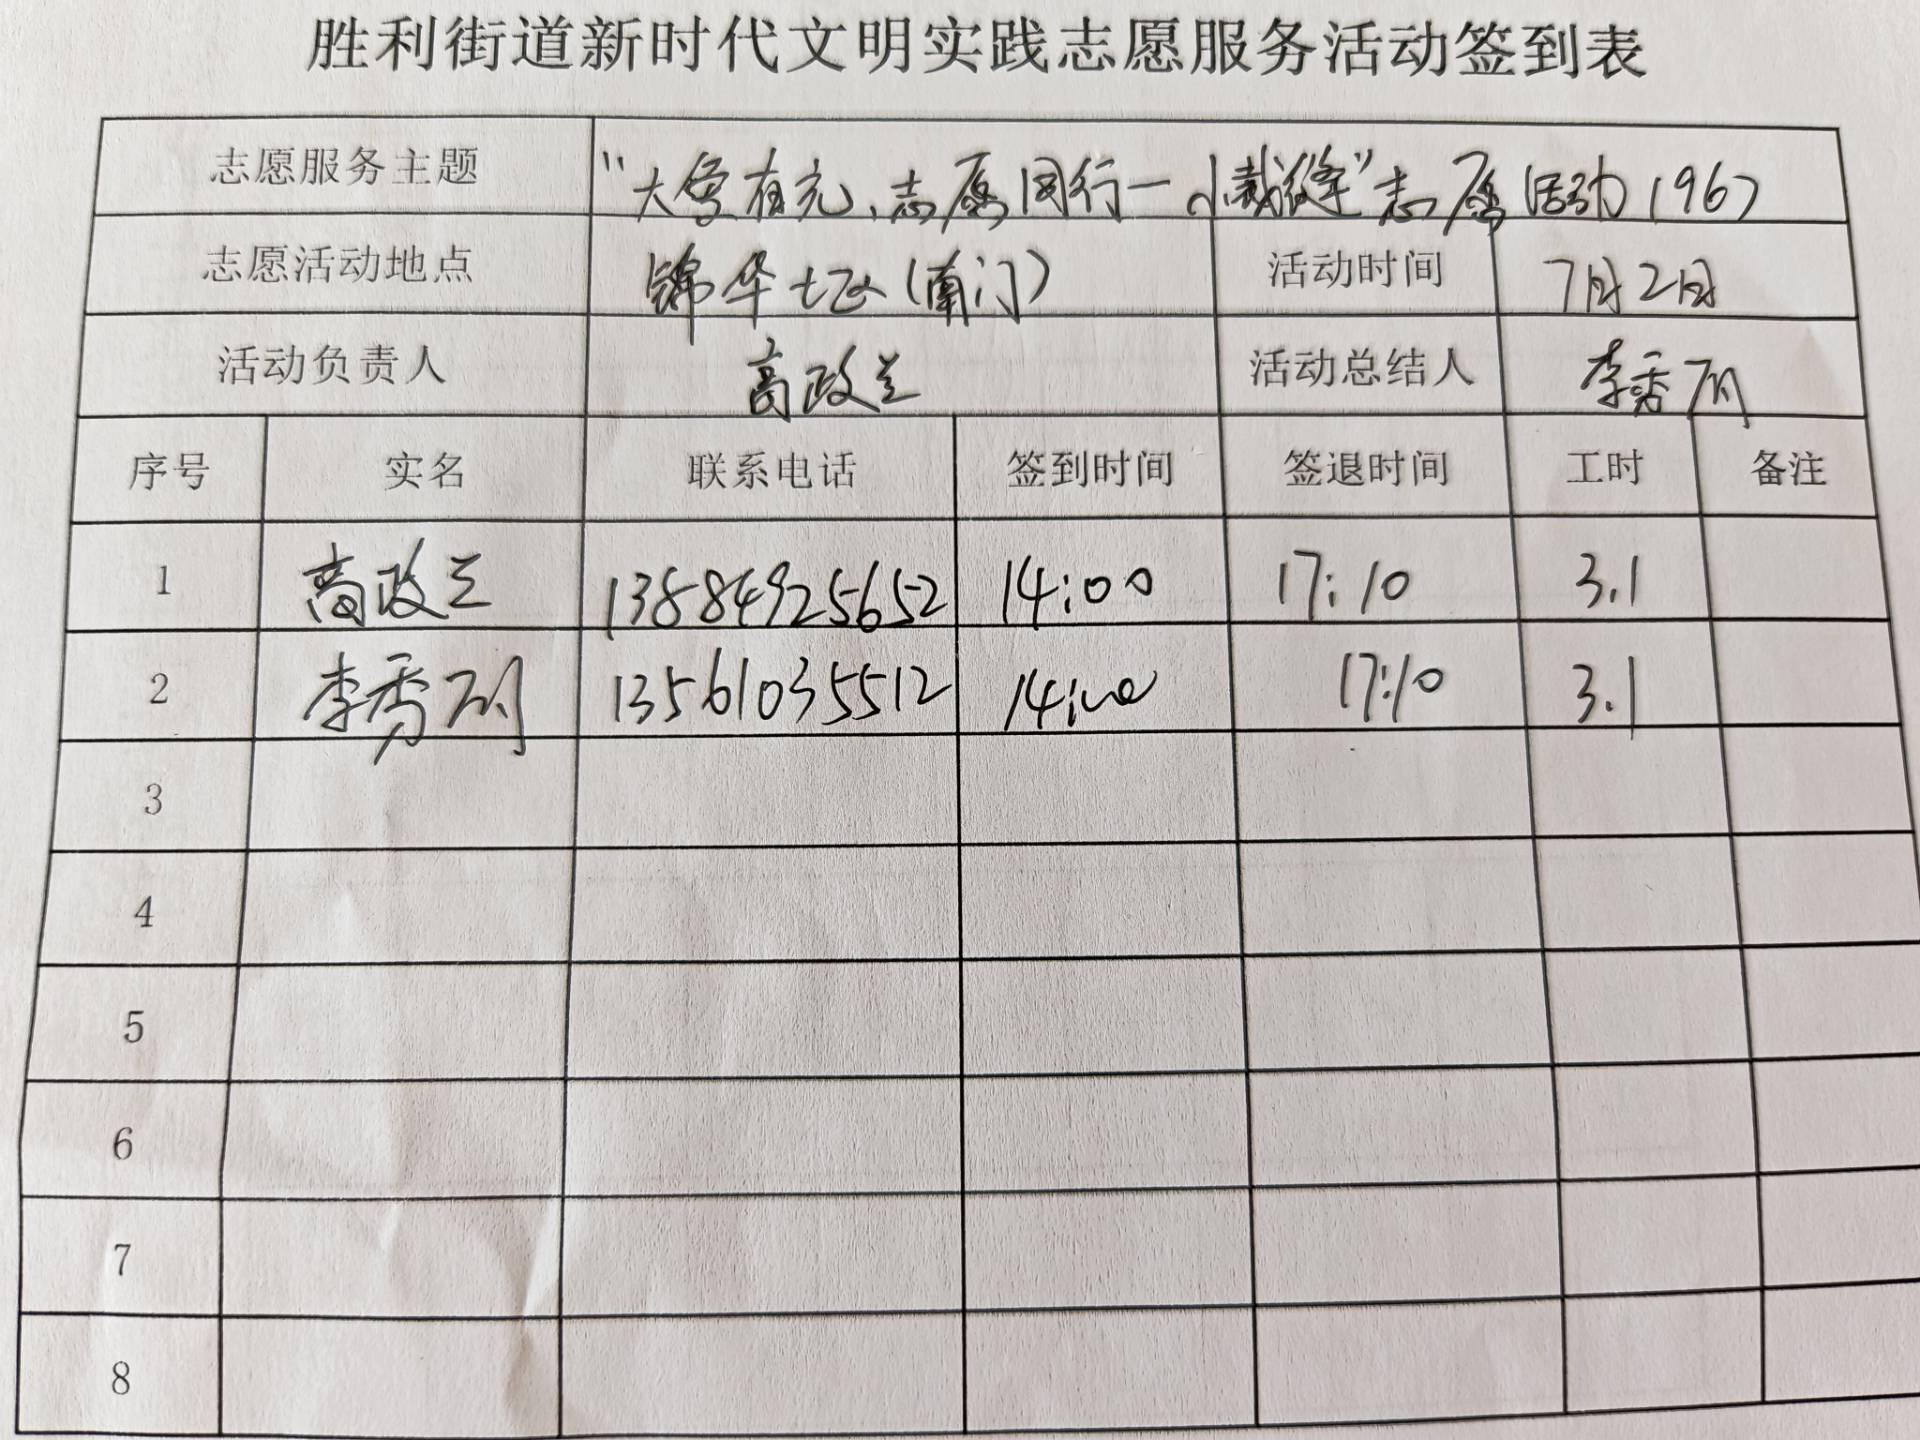 胜利街道新时代文明实践志愿服务活动签到表
志愿服务主题 "大爱有充、志愿同行一小裁缝"志愿活动1967
志愿活动地点 锦华七区(南门) 活动时间 7月2日
活动负责人 高政兰 活动总结人 李秀丽
序号 实名 联系电话 签到时间 签退时间 工时 备注
1 高政兰 13884925652 14:00 17:10 3.1
2 李秀丽 13561035512 14:00 17:10 3.1
3
4
5
6
7
8